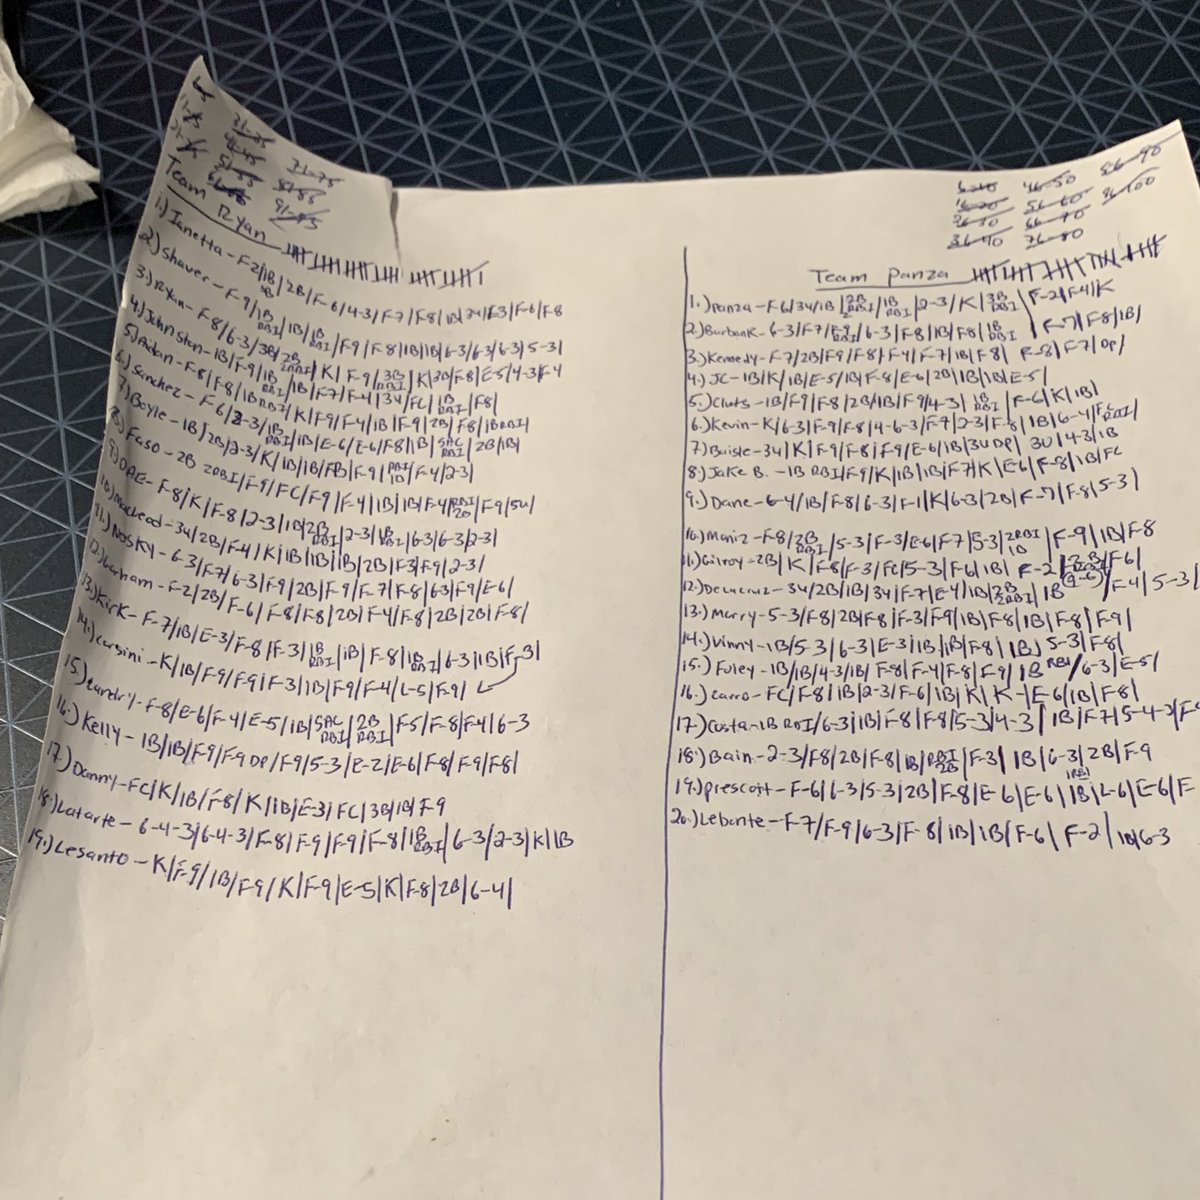 31-35
71-75
91-95
Team Ryan
1.) Ianetta - F-2/1B/2B/F-6/4-3/F7/F8/1B/3U/E3/F-6/F8
2.) Shaver - F-9/1B RBI/1B/1B RBI/F9/F8/1B/1B/6-3/6-3/6-3/5-3/
3.) Ryan - F8/6-3/3B/2B 2RBI/K/F-9/3B RBI/K/3B/F8/E-5/4-3/F4
4.) Johnston - 1B/F-9/1B RBI/1B/F7/F-4/3U/FC/1B RBI/F8/
F8/F8/1B RBI/K/F9/F4/1B/F9/2B/F8/1B RBI/
6.) Sanchez - F-6/2-3/1B RBI/1B/E-6/E-6/F8/1B/SAC RBI/2B/1B/
7.) Boyle - 1B/2B/2-3/K/1B/1B/F8/F9/RBI 1B/F4/2-3/
8.) Faso - 2B 2RBI/F9/FC/F9/F4/1B/1B/F4/RBI 2B/F9/5U/
F-8/K/F-8/2-3/1B/2B RBI/2-3/1B RBI/6-3/6-3/2-3/
10.) MacLeod - 3U/2B/F-4/K/1B/1B/1B/2B/F3/F9/2-3/
11.) Nosky - 6-3/F7/6-3/F9/2B/F9/F-7/F8/63/F9/E-6/
12.) Gorham - F-2/2B/F-6/F8/F8/2B/F-4/F-8/2B/2B/F-8/
13.) Kirk - F-7/1B/E-3/F-8/F-3/1B RBI/1B/F-8/1B RBI/6-3/1B/F-3/
14.) Corsini - K/1B/F9/F9/F-3/1B/F9/F-4/L-5/F-9/
15.) Landry - F-8/E-6/F-4/E-5/1B/SAC RBI/2B RBI/F5/F-8/F4/6-3
16.) Kelly - 1B/1B/F9/F9 DP/F9/5-3/E-2/E-6/F8/F9/F8/
17.) Danny - FC/K/1B/F-8/K/1B/E-3/FC/3B/1B/F-9
18.) Latarte - 6-4-3/6-4-3/F-8/F9/F9/F-8/1B RBI/6-3/2-3/K/1B
19.) Lesanto - K/F-9/1B/F-9/K/F-9/E-5/K/F-8/2B/6-4/
46-50
86-90
56-60
96-100
26-30
36-40
76-80
Team Panza
1.) Panza - F-6/3U/1B/2B 2RBI/1B RBI/2-3/K/3B RBI/F-2/F4/K
2.) Burbank - 6-3/F7/F8/6-3/F8/1B/F8/1B RBI/F-7/F8/1B/
3.) Kennedy - F-7/2B/F9/F8/F-4/F-7/1B/F8/F-8/F7/DP/
4.) JC - 1B/K/1B/E-5/1B/F-8/E-6/2B/1B/1B/E-5/
5.) Cluts - 1B/F9/F8/2B/1B/F9/4-3/1B RBI/F-6/K/1B/
6.) Kevin - K/6-3/F-9/F8/4-6-3/F-9/2-3/F-8/1B/6-4/FC RBI/
7.) Buiste - 3U/K/F-9/F-8/F9/E-6/1B/3U DP/3U/4-3/1B
8.) Jake B. - 1B RBI/F9/K/1B/1B/F7/K/E6/F-8/1B/FC
9.) Dane - 6-4/1B/F-8/6-3/F-1/K/6-3/2B/F-7/F8/5-3/
10.) Moniz - F-8/2B RBI/5-3/F-3/E-6/F7/5-3/2RBI 1B/F-9/1B/F-8
11.) Gilroy - 2B/K/F8/F-3/FC/5-3/F6/1B/F-2/2B RBI/F-6/
12.) Delacruz - 3U/2B/1B/3U/F-7/E-4/1B/2B 2RBI/1B (9-6)/F-4/5-3/
13.) Marry - 5-3/F8/2B/F8/F-3/F9/1B/F8/1B/F8/F9/
14.) Vinny - 1B/5-3/6-3/E-3/1B/1B/F8/1B/5-3/F-8/
15.) Foley - 1B/1B/4-3/1B/F-8/F-4/F-8/F-9/1B RBI/6-3/E-5/
16.) Carro - FC/F-8/1B/2-3/F-6/1B/K/K-/E-6/1B/F-8/
17.) Costa - 1B RBI/6-3/1B/F-8/F8/5-3/4-3/1B/F-7/5-4-3/F-9
18.) Bain - 2-3/F8/2B/F-8/1B/RBI 2B/F-3/1B/6-3/2B/F-9
19.) Prescott - F-6/6-3/5-3/2B/F-8/E-6/E-6/1B RBI/L-6/E-6/F-
20.) Lebante - F-7/F-9/6-3/F-8/1B/1B/F-6/F-2/1B/6-3